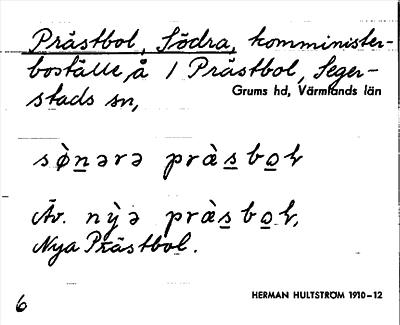 Prästbol, Södra, komminister-
boställe, å 1 Prästbol, Seger-
stads sn,
Grums hd, Värmlands län
sø̀nərə pràsbok
Äv. nỳə pràsbok,
Nya Prästbol.
6
HERMAN HULTSTRÖM 1910-12